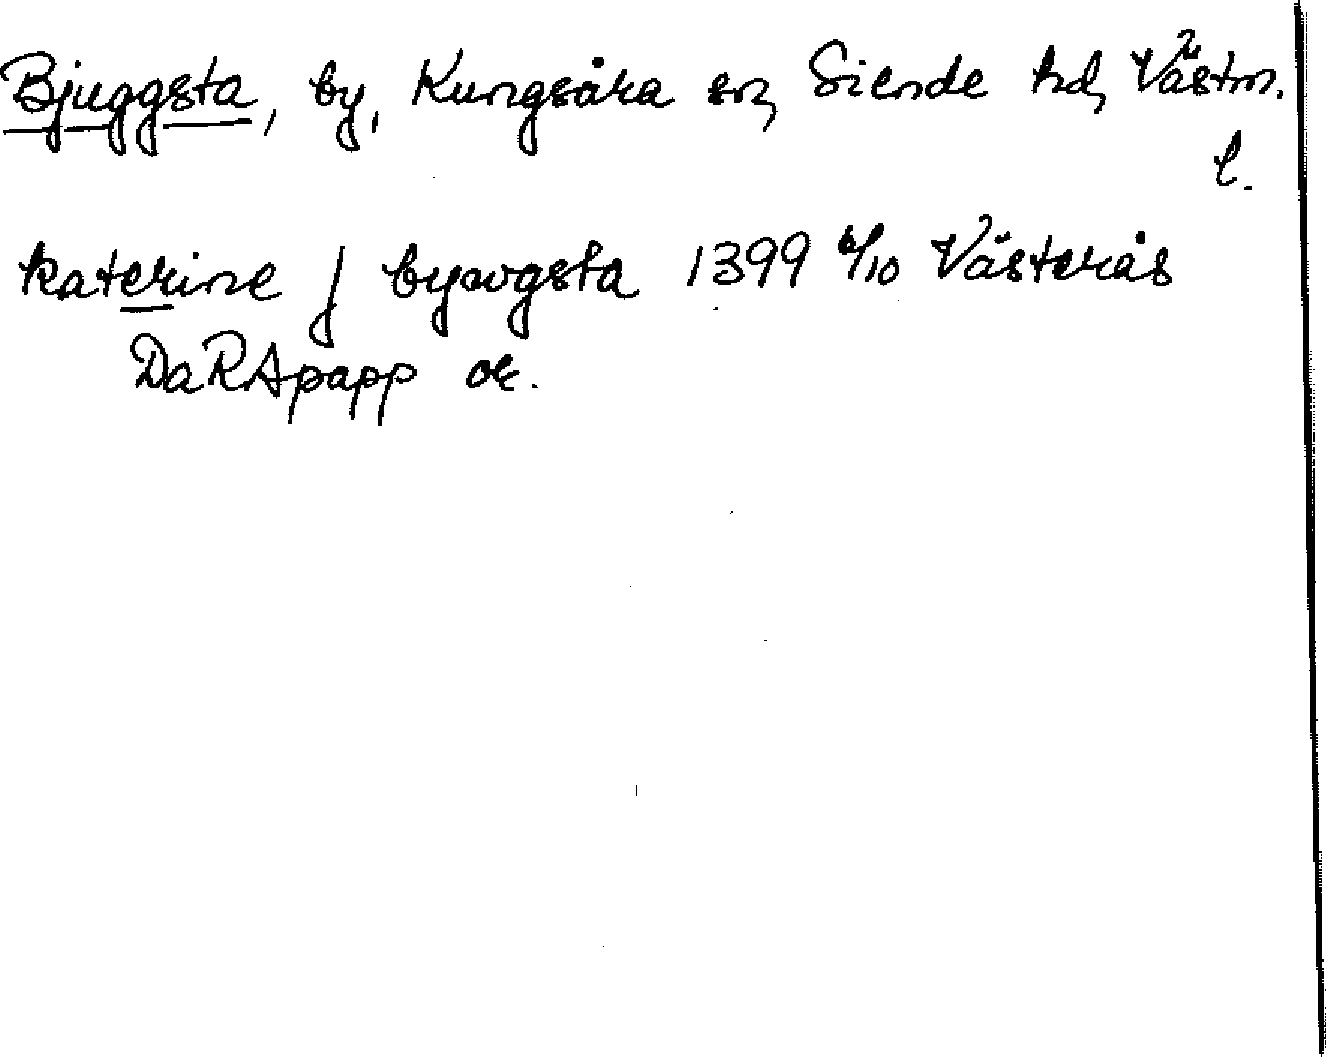 Bjuggsta, by, Kungsåra sn, Siende hd, Västm.
l.
katerine j byawgsta 1399 6/10 Västerås
DaRApapp or.